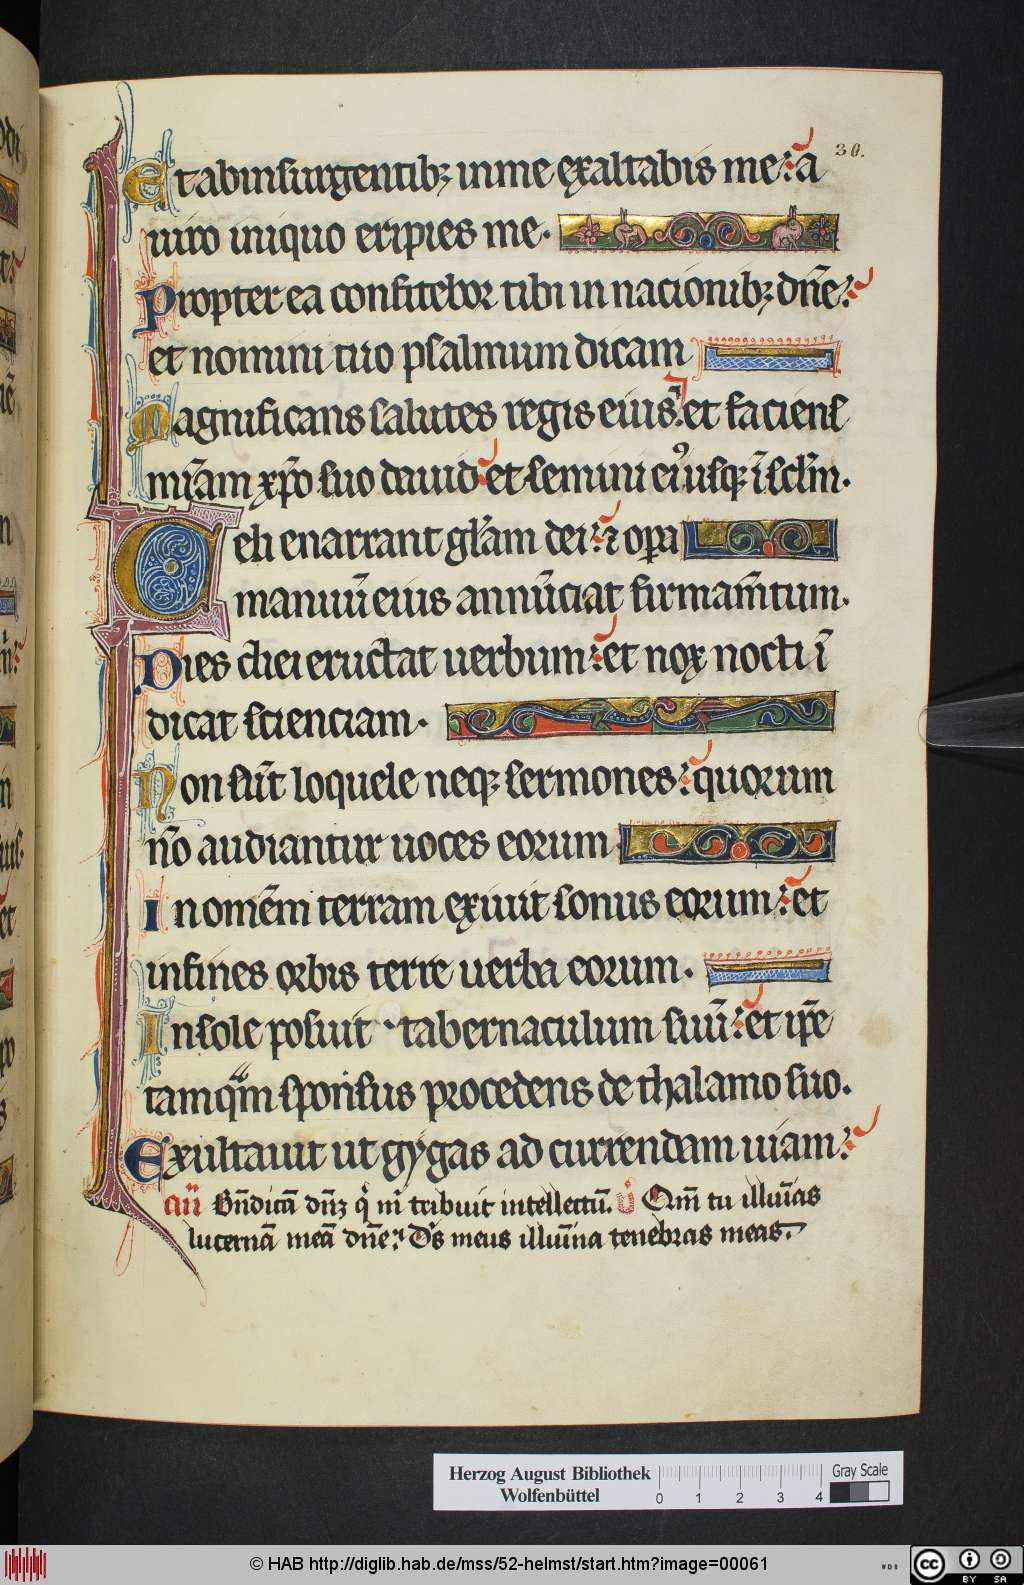 30.
Et ab insurgentibꝫ in me exaltabis me: a
uiro iniquo eripies me.
Propterea confitebor tibi in nacionibꝫ dn̄e:
et nomini tuo psalmum dicam
Magnificans salutes regis eius: et faciens
mĩam xp̄o suo dauid: et semini ei᷒ usqꝫ ĩ sc̄lm.
Celi enarrant gl̃am dei: ⁊ oꝑa
manuũ eius annũciat firmam̃tum.
Dies diei eructat uerbum: et nox nocti ĩ
dicat scienciam.
Non sũt loquele neqꝫ sermones: quorum
nõ audiantur uoces eorum
In omẽm terram exiuit sonus eorum: et
in fines orbis terre uerba eorum.
In sole posuit tabernaculum suũ: et ip̃e
tamqᷓm sponsus procedens de thalamo suo.
Exultauit ut gygas ad currendam uiam:
añ Bñdicã dñꝫ qͥ m̃ tribuit intellectũ. ꝟ Qm̃ tu illuĩas
lucernã meã dñe: Ds̃ meus illuĩna tenebras meas.
Herzog August Bibliothek
Wolfenbüttel
0 1 2 3 4
Gray Scale
© HAB http://diglib.hab.de/mss/52-helmst/start.htm?image=00061
WDB
cc BY SA